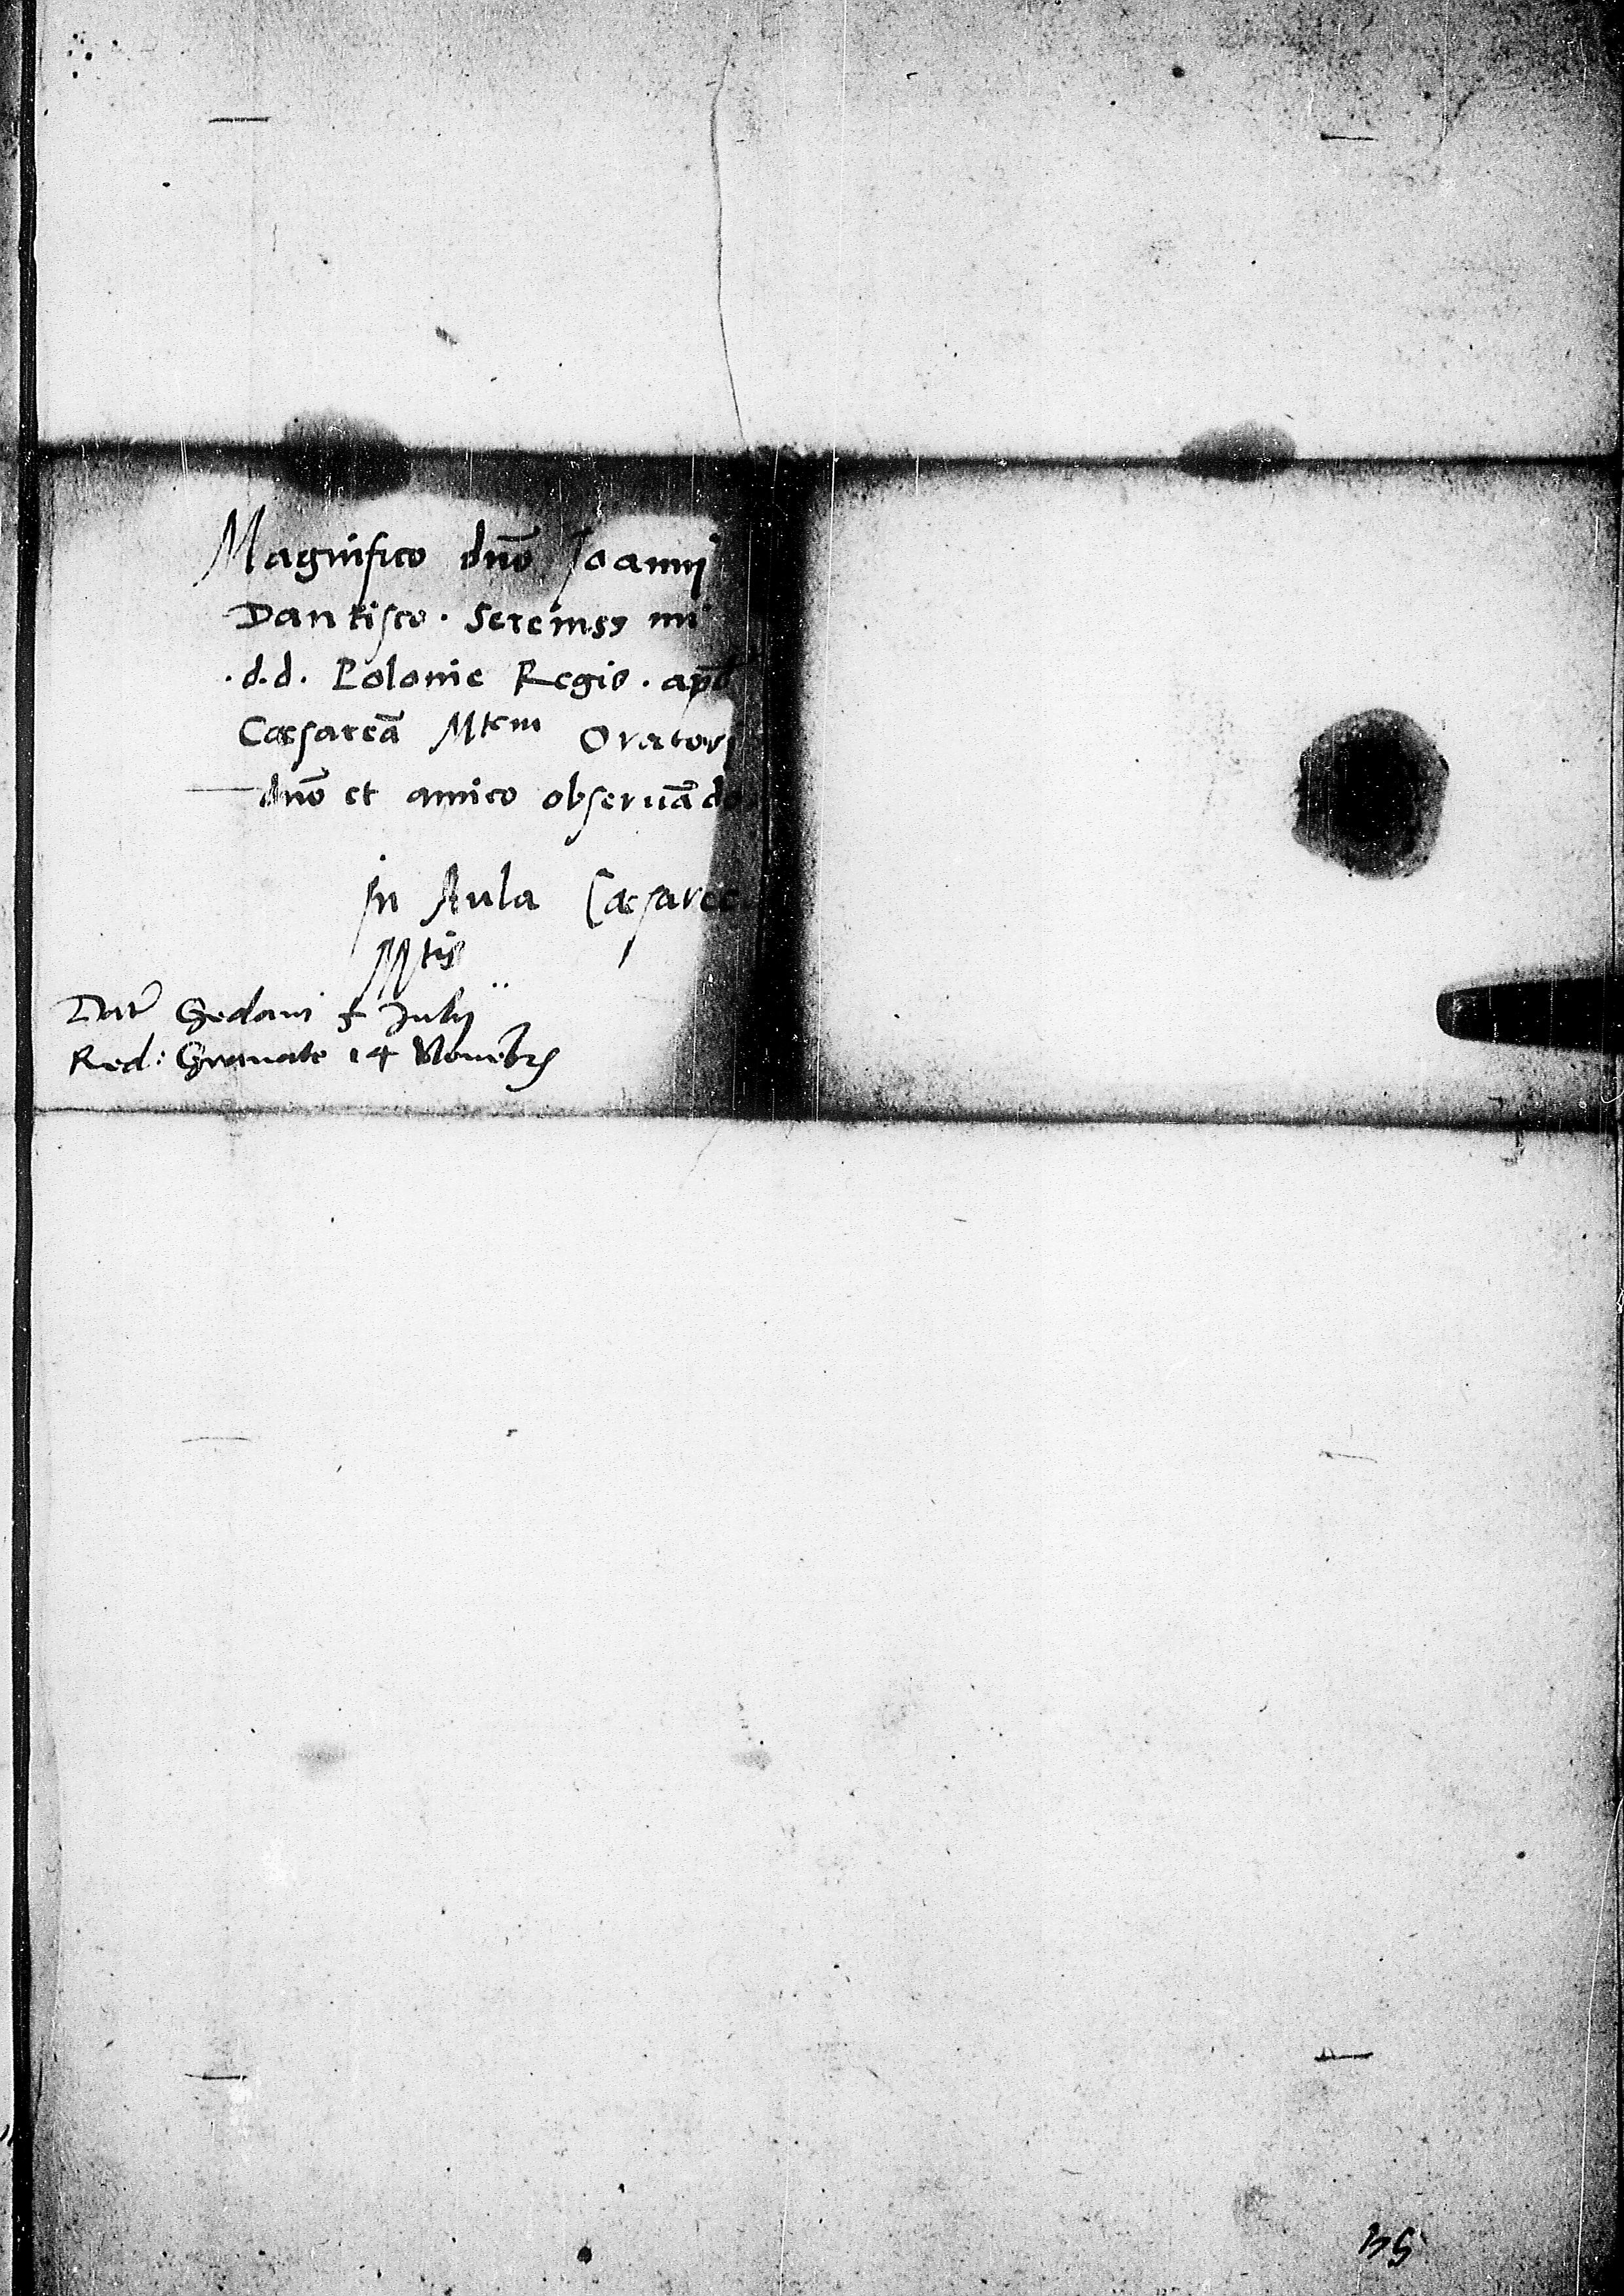 Magnifico dn̄o Joannj
Dantisco . Sereniss mi
.d.d. Polonie Regis . apd
Cæsareā Mtem Oratorj
dn̄o et amico obseruādo
Jn Aula Cæsaree
Mtis
Dat Gedani 5 Julij
Red: Granate 14 Nouēbr